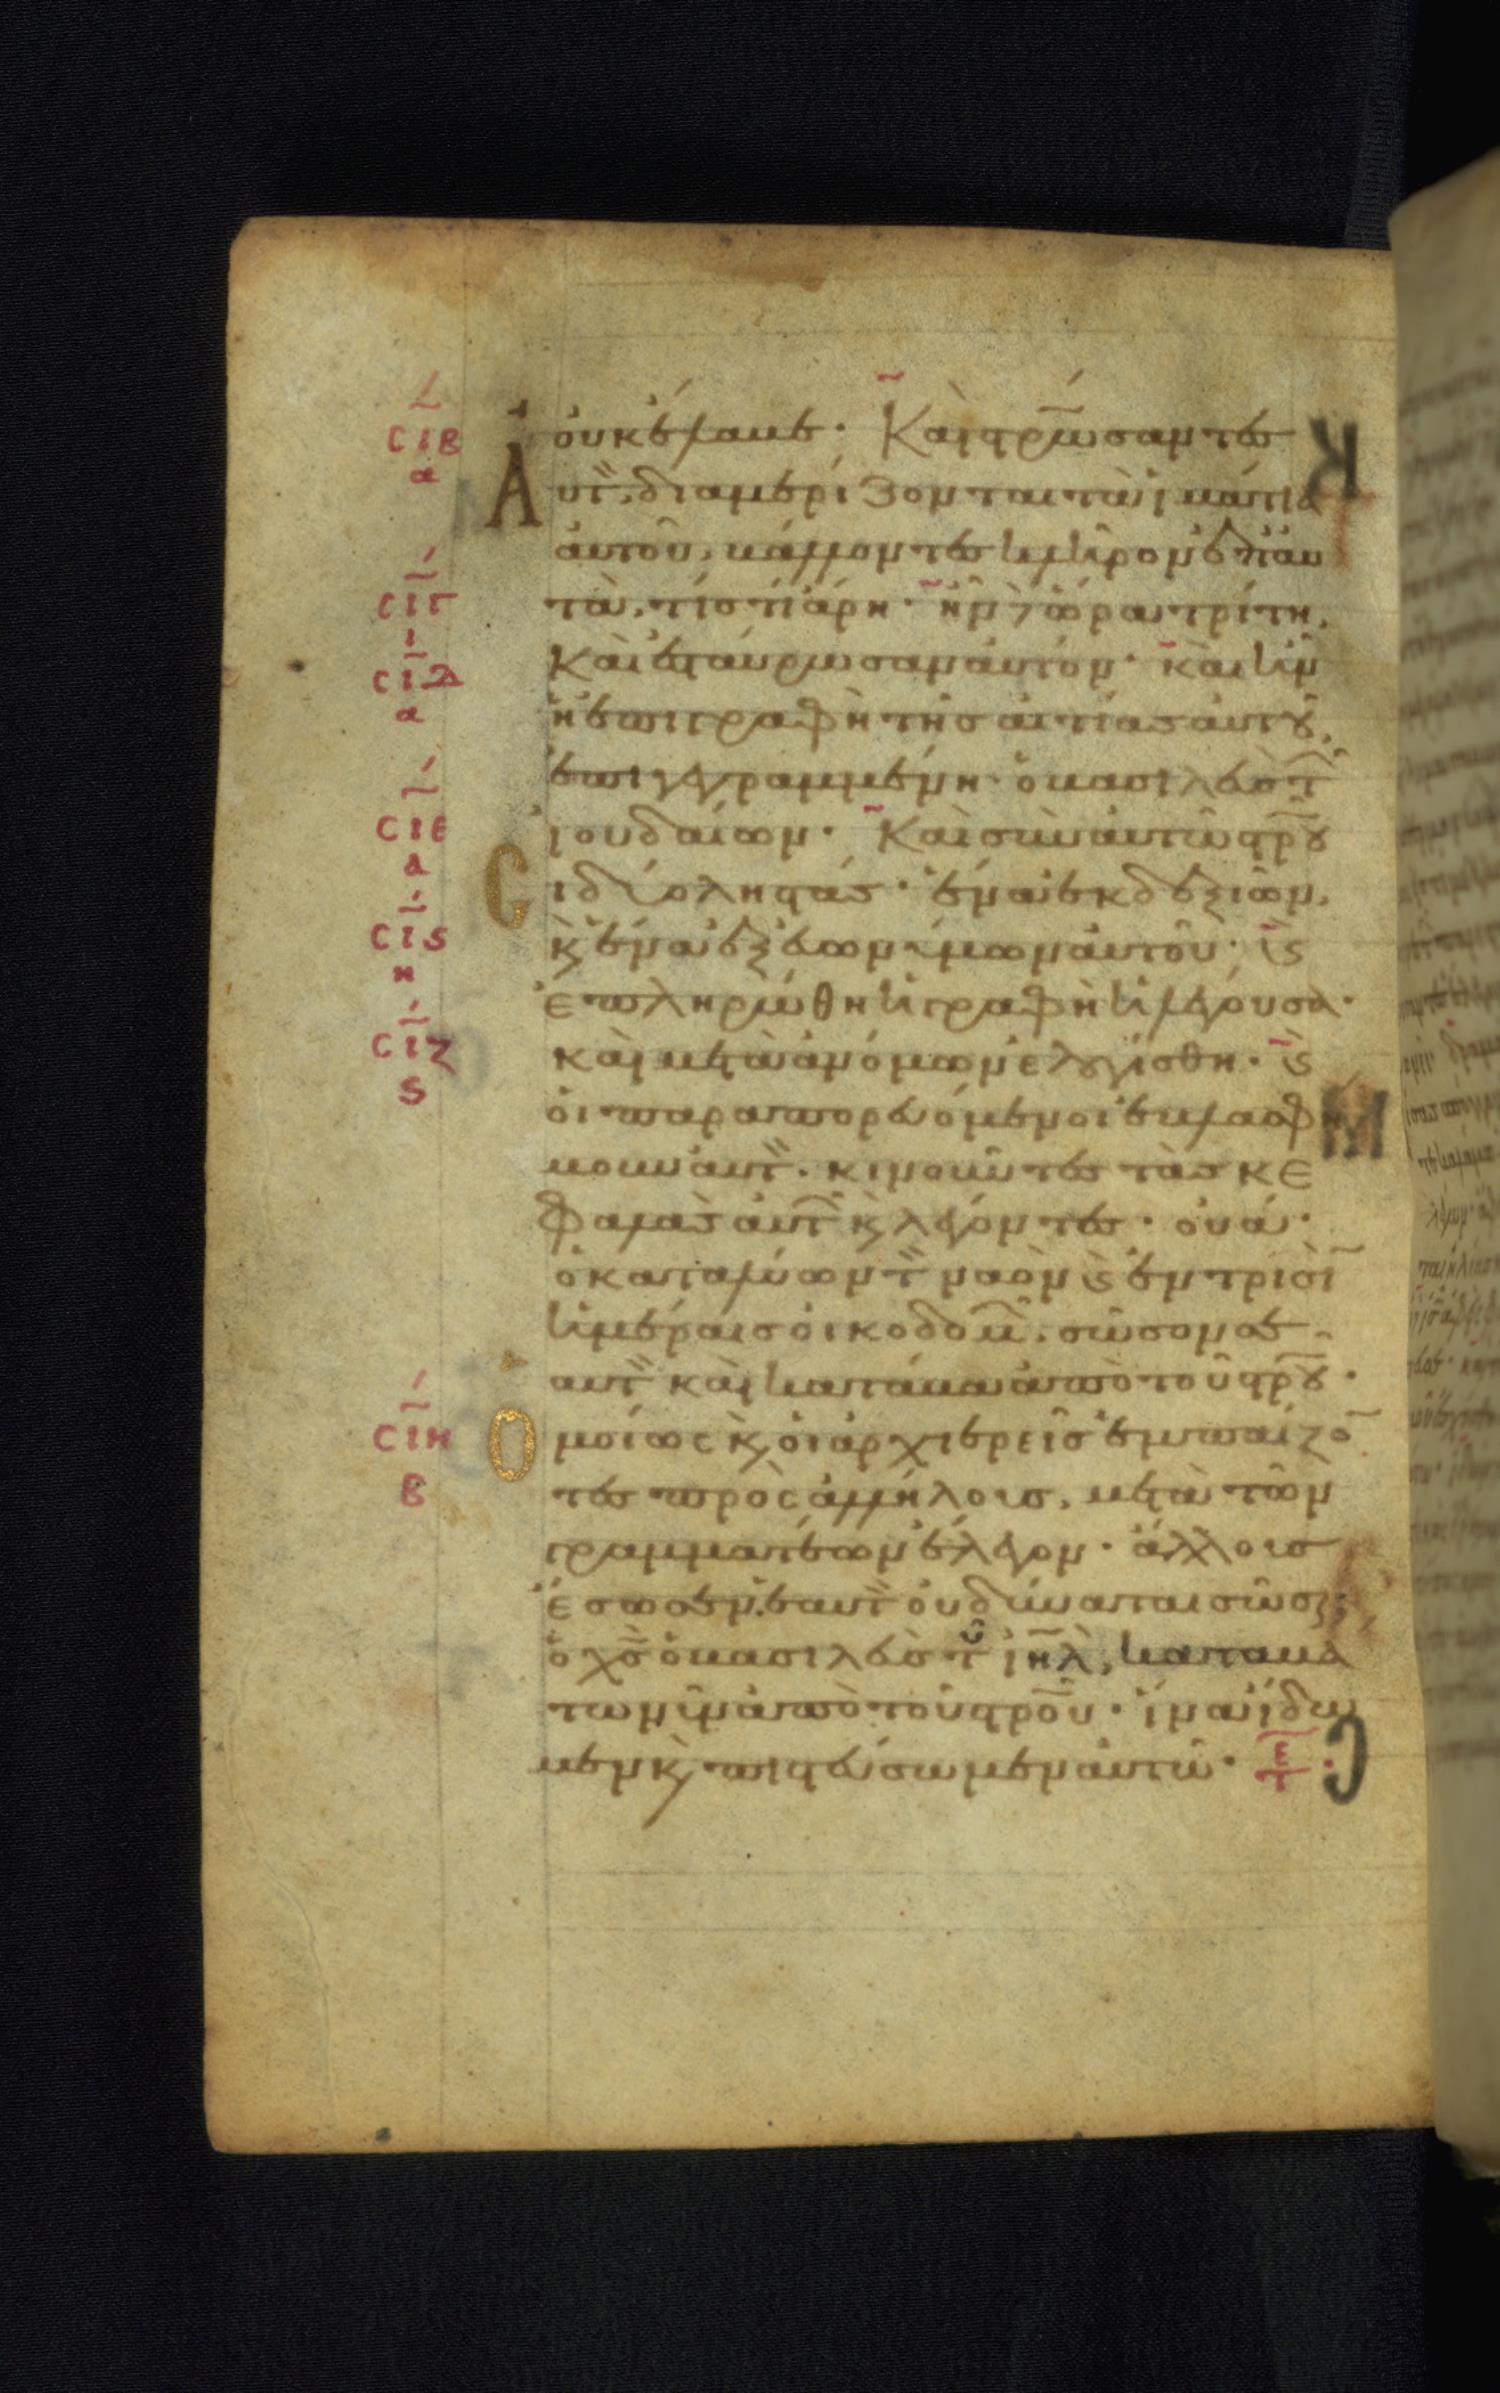 οὐκ ἔλαβε· Καὶ στρώσαντες
Αυτ, διαμερίζονται τὰ ἱμάτια
αὐτοῦ, βάλλοντες κλῆρον ἐπ' αὐ
τὰ, τίς τί ἄρη· ἦν δὲ ὥρα τρίτη,
Καὶ ἐσταύρωσαν αὐτόν· καὶ ἦν
ἡ ἐπιγραφὴ τῆς αἰτίας αὐτοῦ,
ἐπιγεγραμμένη· ὁ βασιλεὺς τ
ἰουδαίων· Καὶ σὺν αὐτῶ στρου
ιδ ληστάς· ἕνα ἐκ δεξιῶν,
ϗ ἕνα ἐξ εὐωνύμων αὐτοῦ· ϗ
Ἐπληρώθη ἡ γραφὴ ἡ λέγουσα·
καὶ μετὰ ἀνόμων ἐλογίσθη· ϗ
οἱ παραπορευόμενοι ἐβλασφή
μουν αυτ· κινοῦντες τὰς κε
φαλὰς αὐτ ϗ λέγοντες· οὐά·
ὁ καταλύων τ ναὸν ϗ ἐν τρισὶ
ἡμέραις οἰκοδομ, σῶσον σε
αυτ καὶ κατάβα ἀπὸ τοῦ στρου·
Ομοίως ϗ οἱ ἀρχιερεῖς ἐμπαίζο
τες πρὸς ἀλλήλοις, μετὰ τῶν
γραμματέων ἔλεγον· ἄλλους
ἔσωσεν, ἑαυτ οὐ δύναται σῶσαι;
ὁ χς ὁ βασιλεὺς τοῦ ιηλ, καταβά
τω νῦν ἀπὸ τοῦ στρου· ἵνα ἴδω
μεν ϗ πιστεύσωμεν αὐτῶ·
CΙΒ
α
CΙΓ
ι
CΙΔ
α
CΙΕ
α
CΙS
η
CΙΖ
S
CΙΗ
Β